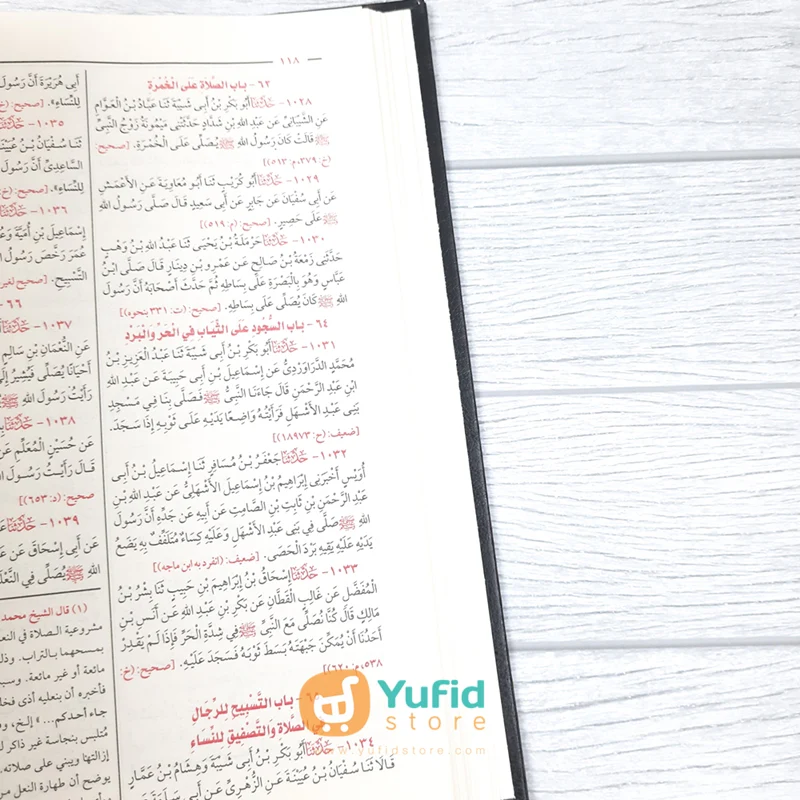 ١١٨
٦٣- باب الصَّلاة عَلَى الْخُمْرَةِ
١٠٢٨- حَدَّثَنَا أَبُو بَكْرِ بْنُ أَبِي شَيْبَةَ ثَنَا عَبَّادُ بْنُ الْعَوَّامِ
عَنِ الشَّيْبَانِيِّ عَنْ عَبْدِ اللهِ بْنِ شَدَّادٍ حَدَّثَتْنِي مَيْمُونَةُ زَوْجُ النَّبِيِّ
ﷺ قَالَتْ كَانَ رَسُولُ اللهِ ﷺ يُصَلِّي عَلَى الْخُمْرَةِ. [صحيح:
(خ: ٣٧٩، م: ٥١٣)]
١٠٢٩- حَدَّثَنَا أَبُو كُرَيْبٍ ثَنَا أَبُو مُعَاوِيَةَ عَنِ الأَعْمَشِ
عَنْ أَبِي سُفْيَانَ عَنْ جَابِرٍ عَنْ أَبِي سَعِيدٍ قَالَ صَلَّى رَسُولُ اللهِ
ﷺ عَلَى حَصِيرٍ. [صحيح: (م: ٥١٩)]
١٠٣٠- حَدَّثَنَا حَرْمَلَةُ بْنُ يَحْيَى ثَنَا عَبْدُ اللهِ بْنُ وَهْبٍ
حَدَّثَنِي زَمْعَةُ بْنُ صَالِحٍ عَنْ عَمْرِو بْنِ دِينَارٍ قَالَ صَلَّى ابْنُ
عَبَّاسٍ وَهُوَ بِالْبَصْرَةِ عَلَى بِسَاطِهِ ثُمَّ حَدَّثَ أَصْحَابَهُ أَنَّ رَسُولَ
اللهِ ﷺ كَانَ يُصَلِّي عَلَى بِسَاطِهِ. [صحيح: (ت: ٣٣١ بنحوه)]
٦٤- باب السُّجُودِ عَلَى الثِّيَابِ فِي الْحَرِّ وَالْبَرْدِ
١٠٣١- حَدَّثَنَا أَبُو بَكْرِ بْنُ أَبِي شَيْبَةَ ثَنَا عَبْدُ الْعَزِيزِ بْنُ
مُحَمَّدٍ الدَّرَاوَرْدِيُّ عَنْ إِسْمَاعِيلَ بْنِ أَبِي حَبِيبَةَ عَنْ عَبْدِ اللهِ
ابْنِ عَبْدِ الرَّحْمَنِ قَالَ جَاءَنَا النَّبِيُّ ﷺ فَصَلَّى بِنَا فِي مَسْجِدِ
بَنِي عَبْدِ الأَشْهَلِ فَرَأَيْتُهُ وَاضِعًا يَدَيْهِ عَلَى ثَوْبِهِ إِذَا سَجَدَ.
[ضعيف: (ح: ١٨٩٧٣)]
١٠٣٢- حَدَّثَنَا جَعْفَرُ بْنُ مُسَافِرٍ ثَنَا إِسْمَاعِيلُ بْنُ أَبِي
أُوَيْسٍ أَخْبَرَنِي إِبْرَاهِيمُ بْنُ إِسْمَاعِيلَ الأَشْهَلِيُّ عَنْ عَبْدِ اللهِ بْنِ
عَبْدِ الرَّحْمَنِ بْنِ ثَابِتِ بْنِ الصَّامِتِ عَنْ أَبِيهِ عَنْ جَدِّهِ أَنَّ رَسُولَ
اللهِ ﷺ صَلَّى فِي بَنِي عَبْدِ الأَشْهَلِ وَعَلَيْهِ كِسَاءٌ مُتَلَفِّفٌ بِهِ يَضَعُ
يَدَيْهِ عَلَيْهِ يَقِيهِ بَرْدَ الْحَصَى. [ضعيف: (انفرد به ابن ماجه)]
١٠٣٣- حَدَّثَنَا إِسْحَاقُ بْنُ إِبْرَاهِيمَ بْنِ حَبِيبٍ ثَنَا بِشْرُ بْنُ
الْمُفَضَّلِ عَنْ غَالِبٍ الْقَطَّانِ عَنْ بَكْرِ بْنِ عَبْدِ اللهِ عَنْ أَنَسِ بْنِ
مَالِكٍ قَالَ كُنَّا نُصَلِّي مَعَ النَّبِيِّ ﷺ فِي شِدَّةِ الْحَرِّ فَإِذَا لَمْ يَقْدِرْ
أَحَدُنَا أَنْ يُمَكِّنَ جَبْهَتَهُ بَسَطَ ثَوْبَهُ فَسَجَدَ عَلَيْهِ. [صحيح: (خ:
٥٣٨، م: ٦٢٠)]
باب التَّسْبِيحِ لِلرِّجَالِ
الصَّلاَةِ وَالتَّصْفِيقِ لِلنِّسَاءِ
١٠٣٤- حَدَّثَنَا أَبُو بَكْرِ بْنُ أَبِي شَيْبَةَ وَهِشَامُ بْنُ عَمَّارٍ
قَالاَ ثَنَا سُفْيَانُ بْنُ عُيَيْنَةَ عَنِ الزُّهْرِيِّ عَنْ أَبِي سَلَمَةَ
أَبِي هُرَيْرَةَ أَنَّ رَسُولَ
لِلنِّسَاءِ». [صحيح: (خ
١٠٣٥- حَدَّثَنَا
ثَنَا سُفْيَانُ بْنُ عُيَيْنَةَ
السَّاعِدِيِّ أَنَّ رَسُولَ
لِلنِّسَاءِ». [صحيح: (خ
١٠٣٦- حَدَّثَنَا
إِسْمَاعِيلَ بْنِ أُمَيَّةَ
عُمَرَ رَخَّصَ رَسُولُ
التَّسْبِيحِ. [صحيح لغير
٦٦-
١٠٣٧- حَدَّثَنَا
عَنِ النُّعْمَانِ بْنِ سَالِمٍ
أَحْيَانًا يُصَلِّي فَيُشِيرُ
رَأَيْتُ رَسُولَ اللهِ ﷺ
١٠٣٨- حَدَّثَنَا
عَنْ حُسَيْنٍ الْمُعَلِّمِ عَنْ
قَالَ رَأَيْتُ رَسُولَ
صحيح: (د: ٦٥٣)]
١٠٣٩- حَدَّثَنَا
عَنْ أَبِي إِسْحَاقَ عَنْ
اللهِ ﷺ يُصَلِّي فِي
(١) قال الشيخ محمد
مشروعية الصلاة في
بمسحهما بالتراب.
مائعة أو غير مائعة.
فأخبره أن بنعليه أذى
جاء أحدكم...» إلخ،
متلبس بنجاسة غير ذاكر
إزالتها ويبني على صلاته
يوضح أن طهارة النعل
Yufid
store
www.yufidstore.com